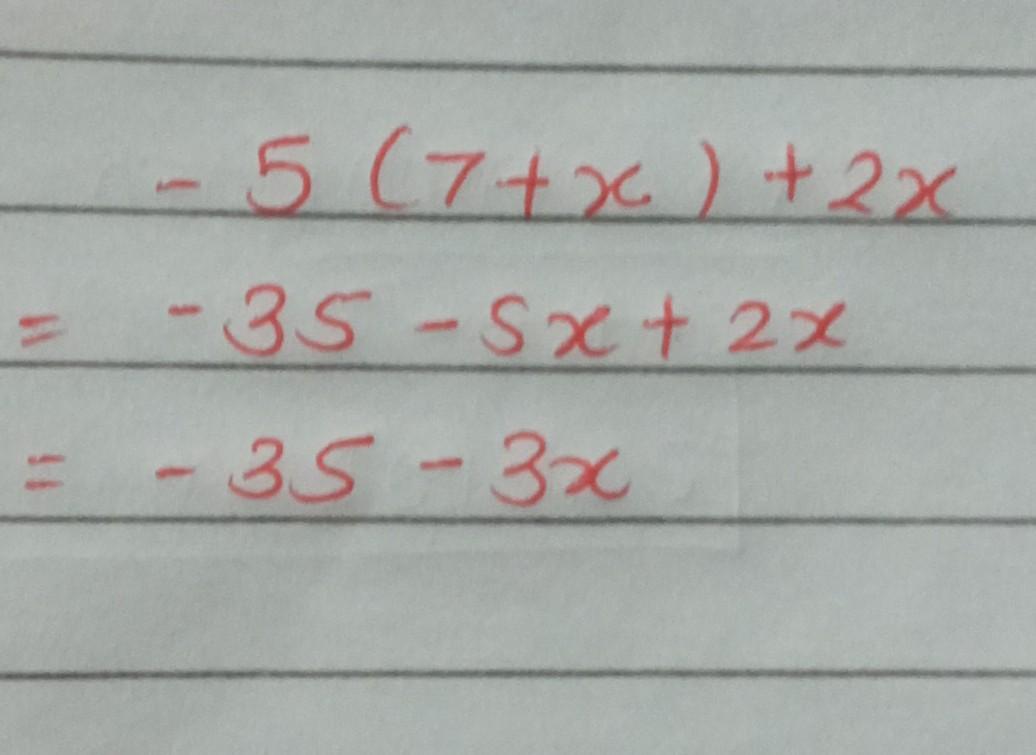 - 5 (7+x) + 2x
= -35 - 5x + 2x
= - 35 - 3x